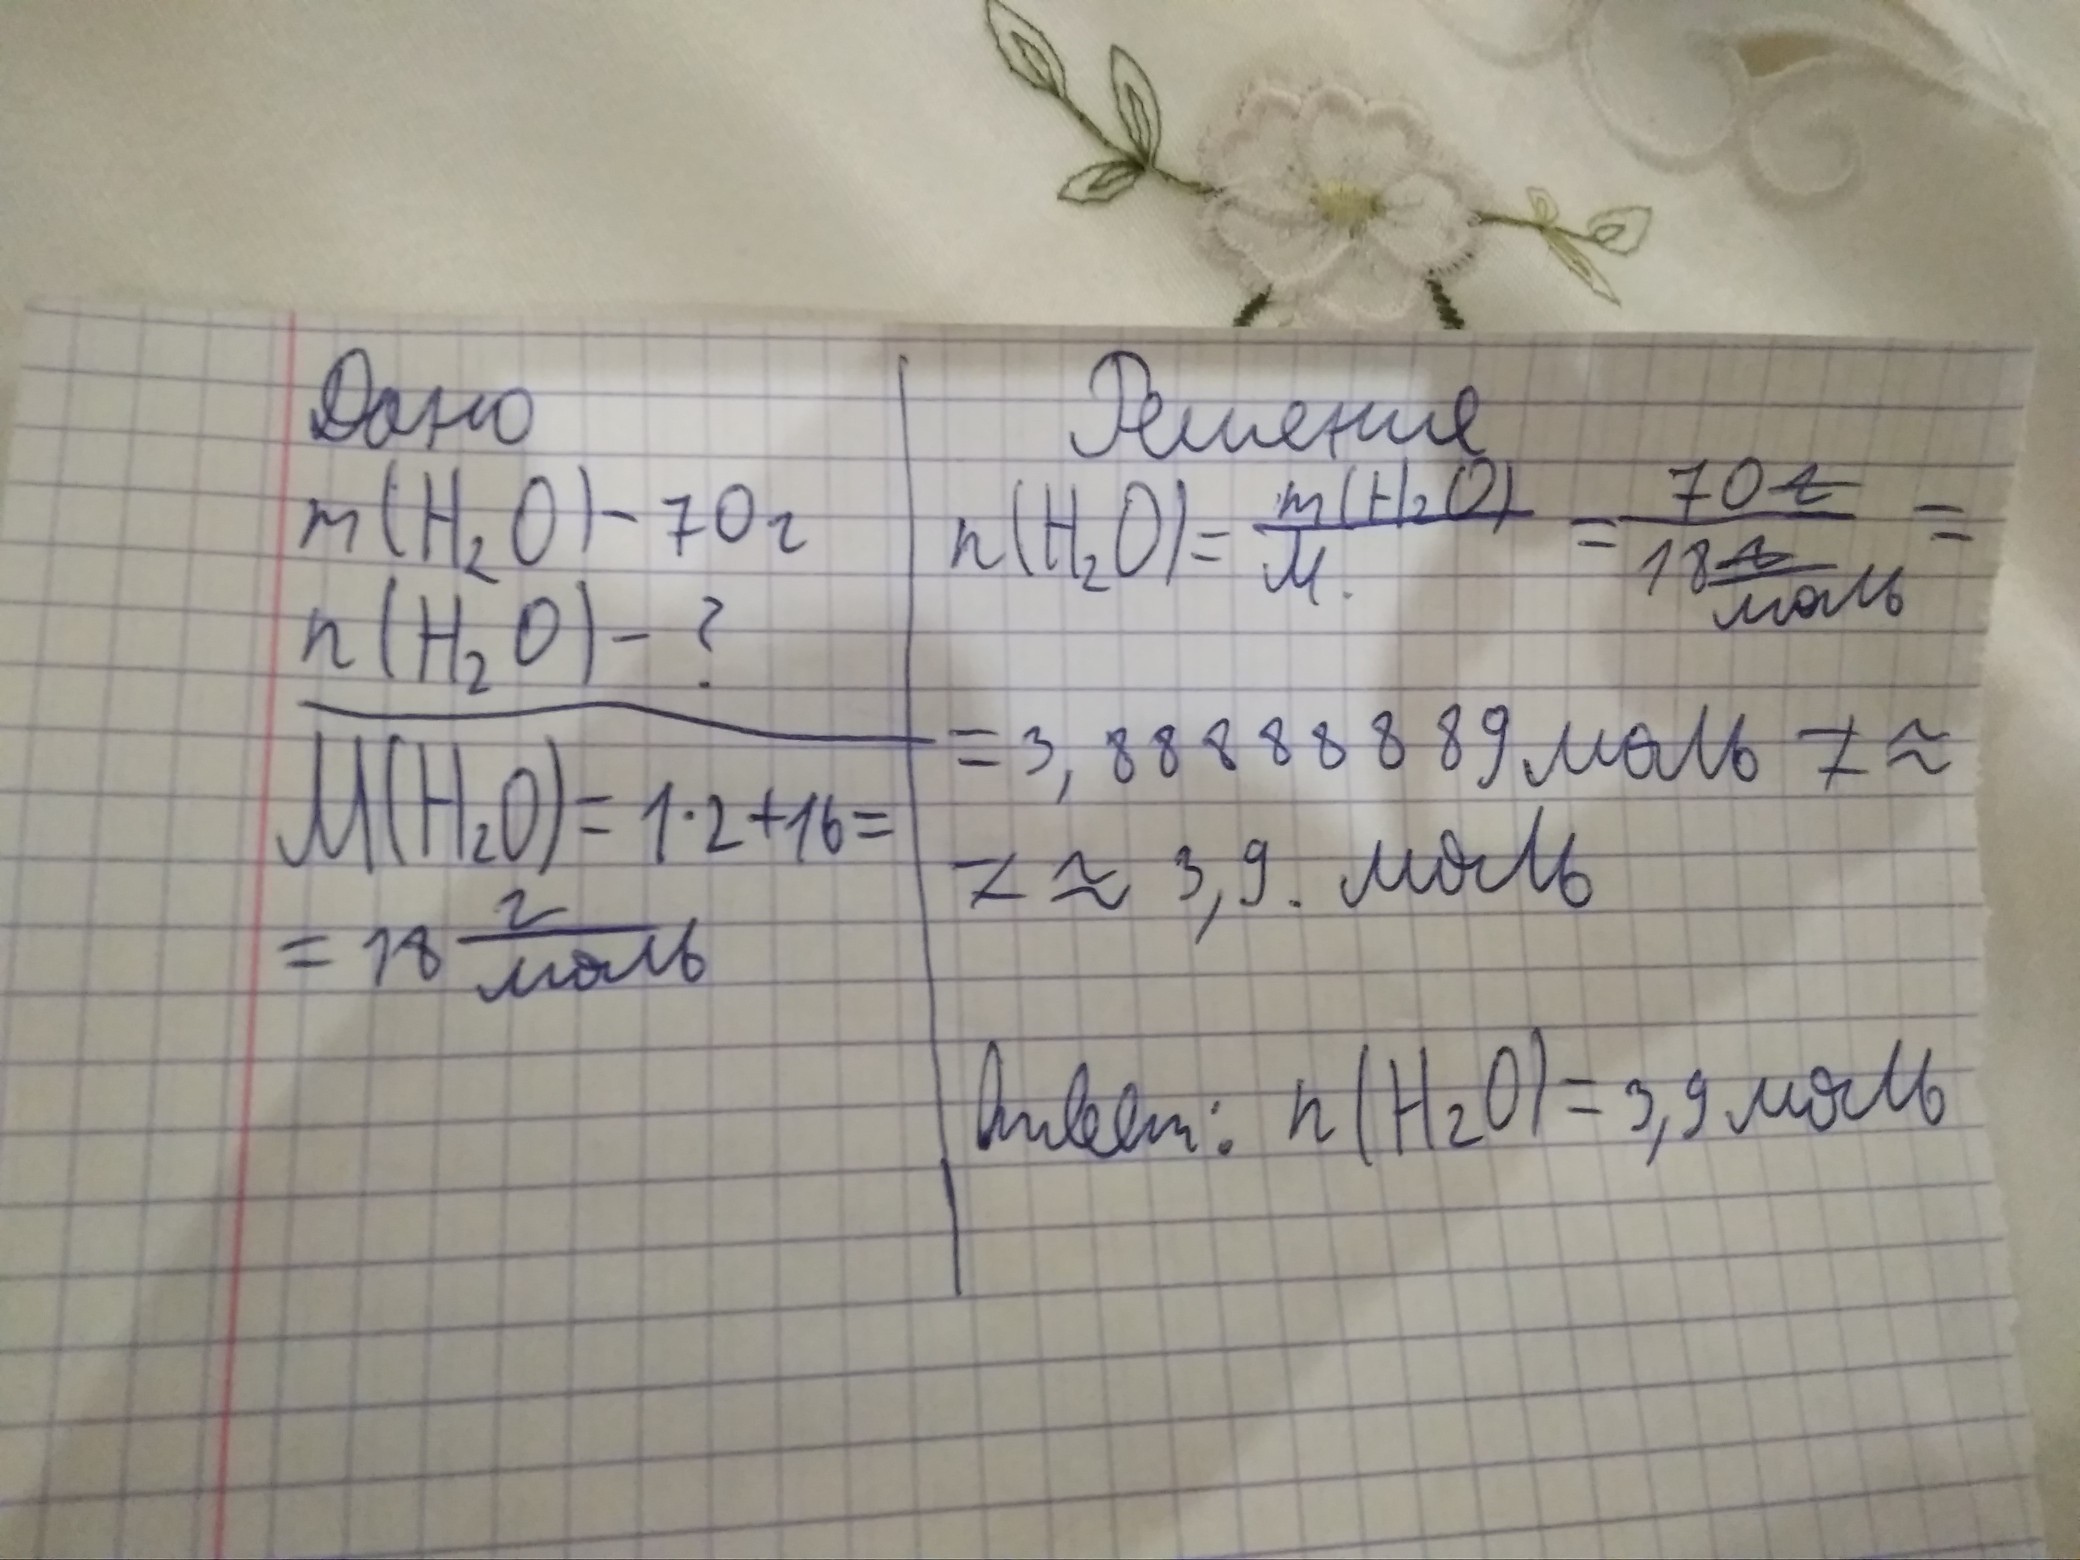 Дано
m(H₂O) - 70г
n(H₂O) - ?
M(H₂O) = 1·2+16=
= 18 г/моль
Решение
n(H₂O) = m(H₂O)/M. = 70г/18г/моль =
= 3,88888889 моль ≈
≈ 3,9. моль
Ответ: n(H₂O) = 3,9 моль